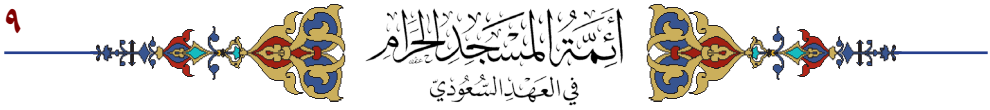 ٩
أَئِمَّةُ المَسْجِدِ الحَرَامِ
فِي العَهْدِ السُّعُودِيّ